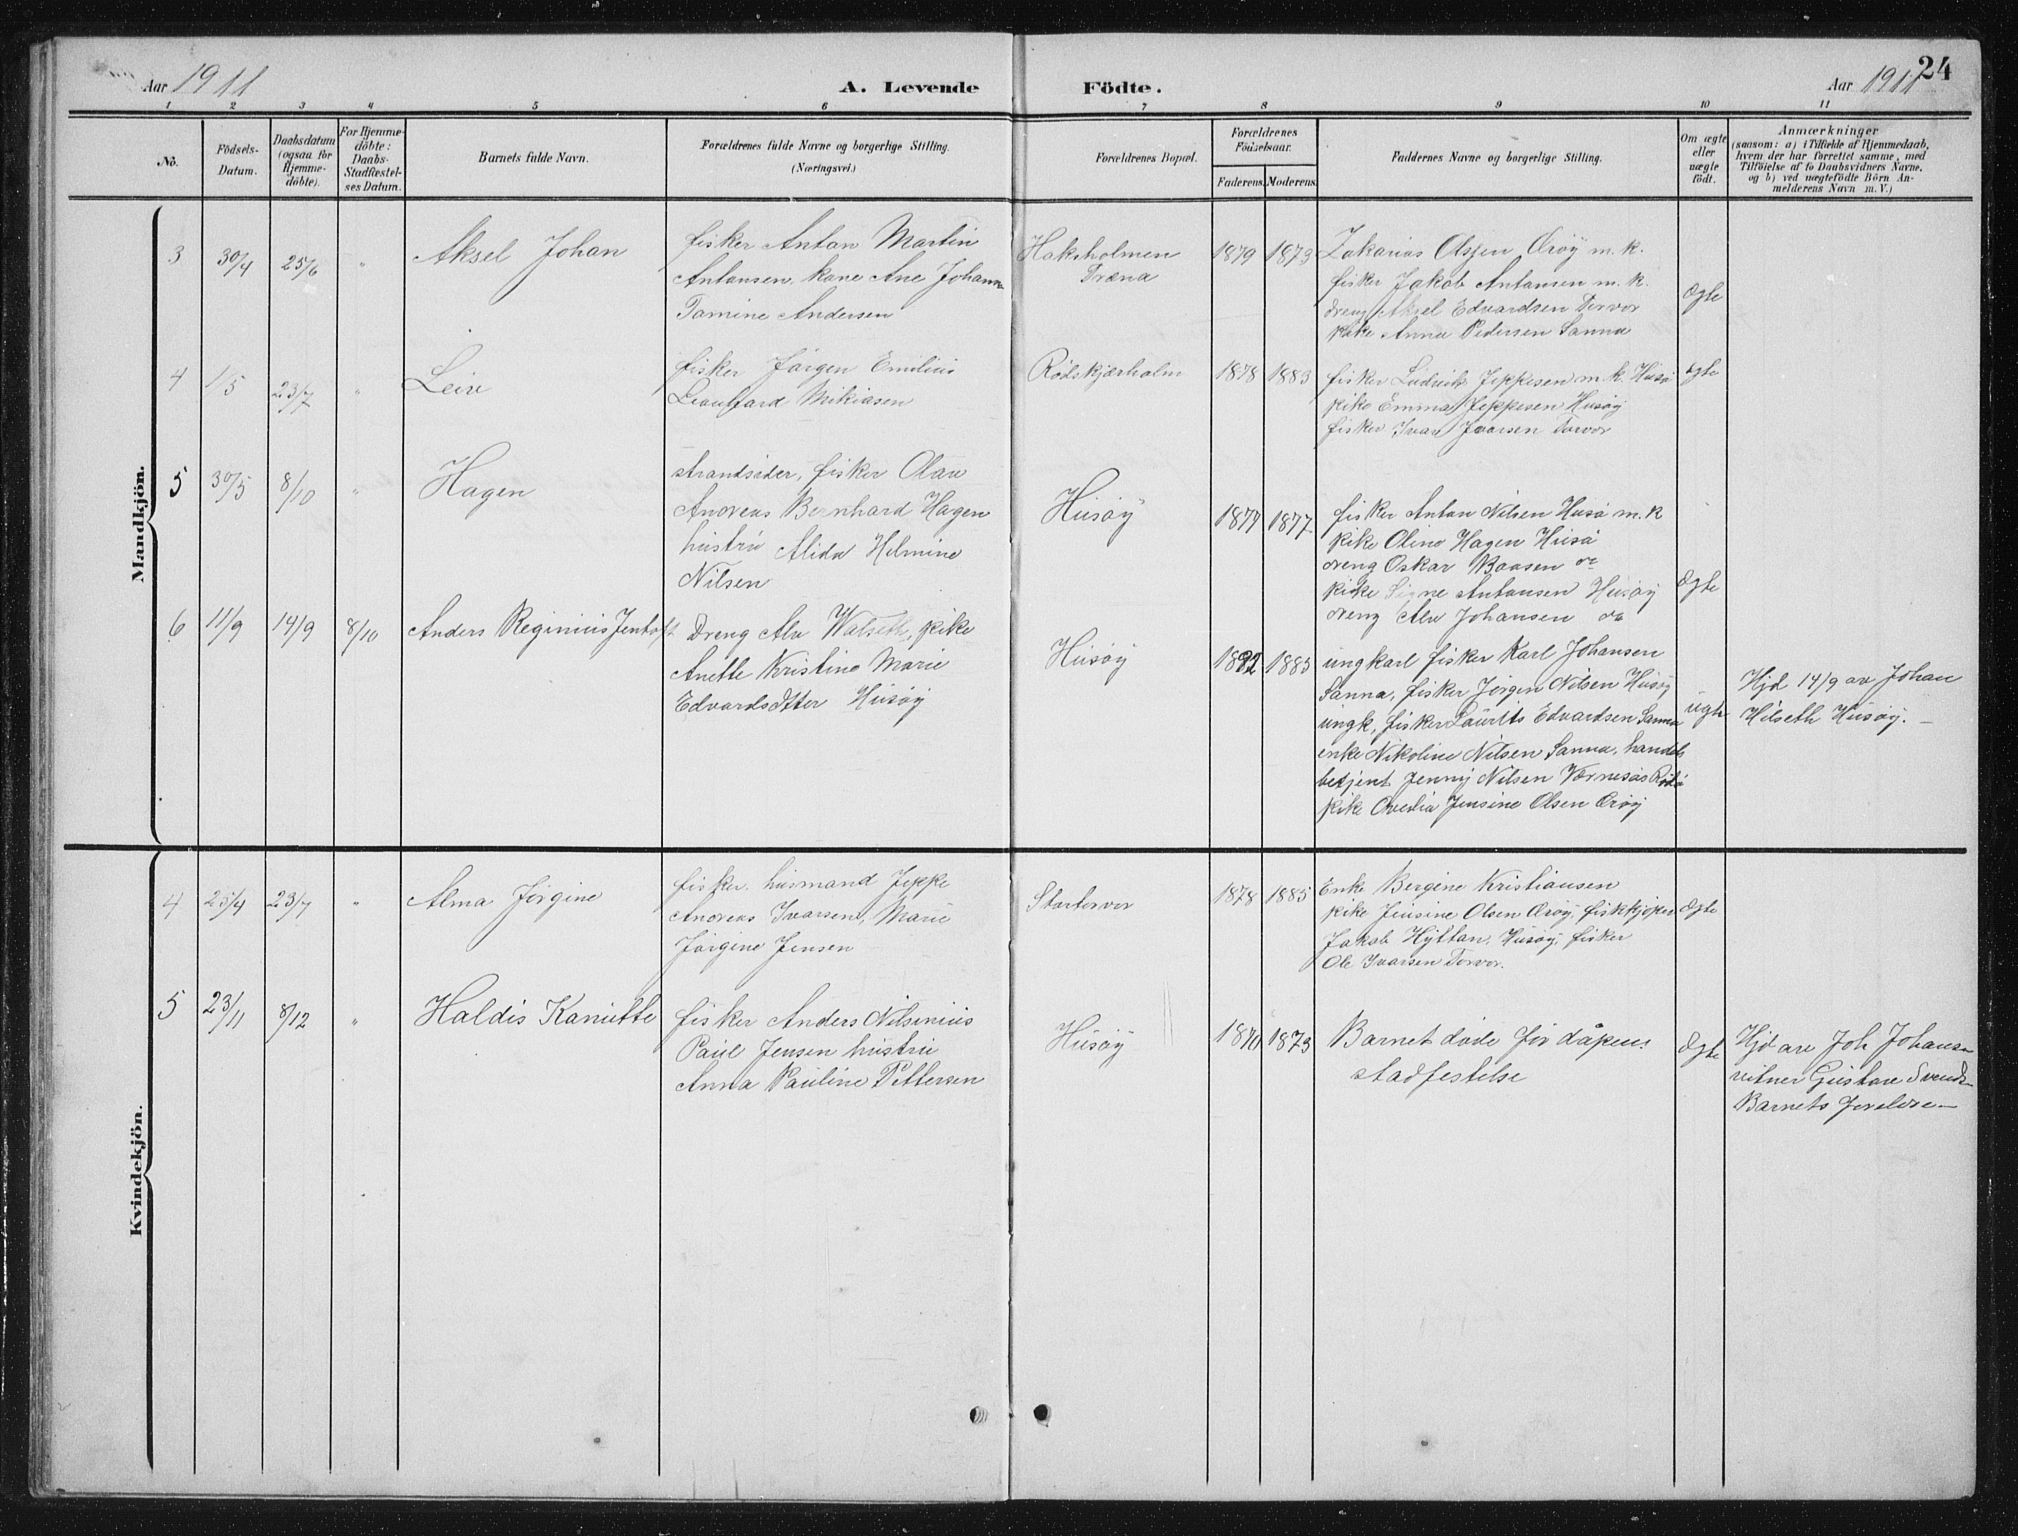 Aar 1911
A. Levende
Födte.
Aar 1911
24
1 2 3 4 5 6 7 8 9 10 11
No.
Födsels-
Datum.
Daabsdatum
(ogsaa for
Hjemme-
döbte).
For Hjemme-
döbte:
Daabs-
Stadfæstel-
ses Datum.
Barnets fulde Navn.
Forældrenes fulde Navne og borgerlige Stilling.
(Næringsvei.)
Forældrenes Bopæl.
Forældrenes
Födselsaar.
Faderens. Moderens.
Faddernes Navne og borgerlige Stilling.
Om ægte
eller
uægte
födt.
Anmærkninger
(saasom: a) i Tilfælde af Hjemmedaab,
hvem der har forrettet samme, med
Tilföielse af to Daabsvidners Navne,
og b) ved uægtefödte Börn An-
melderens Navn m. V.)
Mandkjön.
3 30/4 25/6 " Aksel Johan
fisker Antan Martin
Antonsen, kone Ane Johann
Tomine Andersen
Hoksholmen
Træna
1879 1873
Zakarias Olsen Ørøy m. k.
fisker Jakob Antonsen m. k.
dreng Aksel Edvardsen Torvor
pike Anna Pedersen Sanna
Ægte
4 1/5 23/7 " Leiv
fisker Jørgen Emilius
Leonhard Mikiasen
Rødskjærholm
1878 1883
fisker Ludvik Jeppesen m. k. Husø
pike Emma Jeppesen Husøy
fisker Ivar Ivarsen Torvor
ægte
5 30/5 8/10 " Hagen
strandsider, fisker Olav
Andreas Bernhard Hagen
hustru Alida Helmine
Nilsen
Husøy
1877 1877
fisker Antan Nilsen Husø m. k
pike Oline Hagen Husø
dreng Oskar Baasen do
pike Signe Antonsen Husøy
dreng Alv Johansen do
Ægte
6 11/9 14/9 8/10 Anders Reginius Jentoft
Dreng Alv Watseth, pike
Anette Kristine Marie
Edvardsdtter Husøy
Husøy
1892 1885
ungkarl fisker Karl Johansen
Sanna, fisker Jørgen Nilsen Husøy
ungk. fisker Laurits Edvardsen Sanna
enke Nikoline Nilsen Sanna, handels
betjent Jenny Nilsen Værnesøs Rødø
pike Ovedia Jensine Olsen Ørøy
uægte
Hjd 14/9 av Johan
Hilseth Husøy.
Kvindekjön.
4 25/4 23/7 " Alma Jørgine
fisker, husmand Jeppe
Andreas Ivarsen, Marie
Jørgine Jensen
Stortorvor
1878 1885
Enke Bergine Kristiansen
pike Jensine Olsen Ørøy, fiskkjøper
Jakob Hyttan, Husøy, fisker
Ole Ivarsen Torvor.
Ægte
5 23/11 8/12 " Haldis Kanutte
fisker Anders Nilsinius
Paul Jensen hustru
Anna Pauline Pettersen
Husøy
1870 1873
Barnet døde før dåpens
stadfestelse
Ægte
Hjd av Joh Johans
vitner Gustav Svends
Barnets foreldre